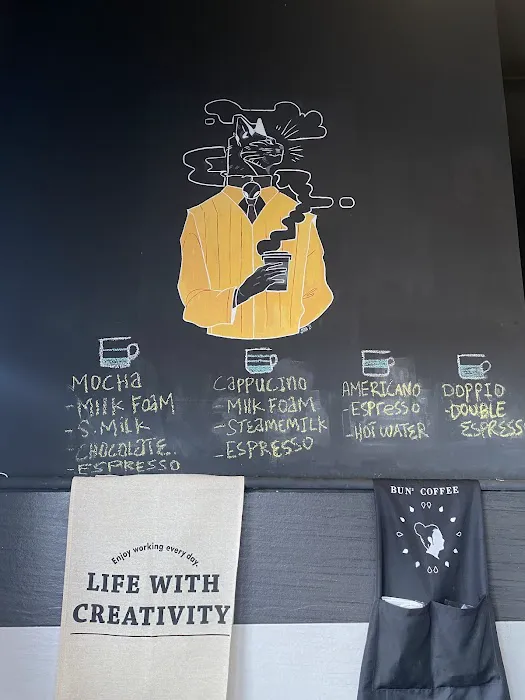 MOCHA
-MIlK FOAM
-S.MILK
-CHOCOLATE.
-ESPRESSO
CAPPUCINO
-MIlK FOAM
-STEAMEMILK
-ESPRESSO
AMERICANO
-ESPresso
-HOT WATER
DOPPIO
-DOUBLE
ESPRESS
Enjoy working every day.
LIFE WITH
CREATIVITY
BUN' COFFEE